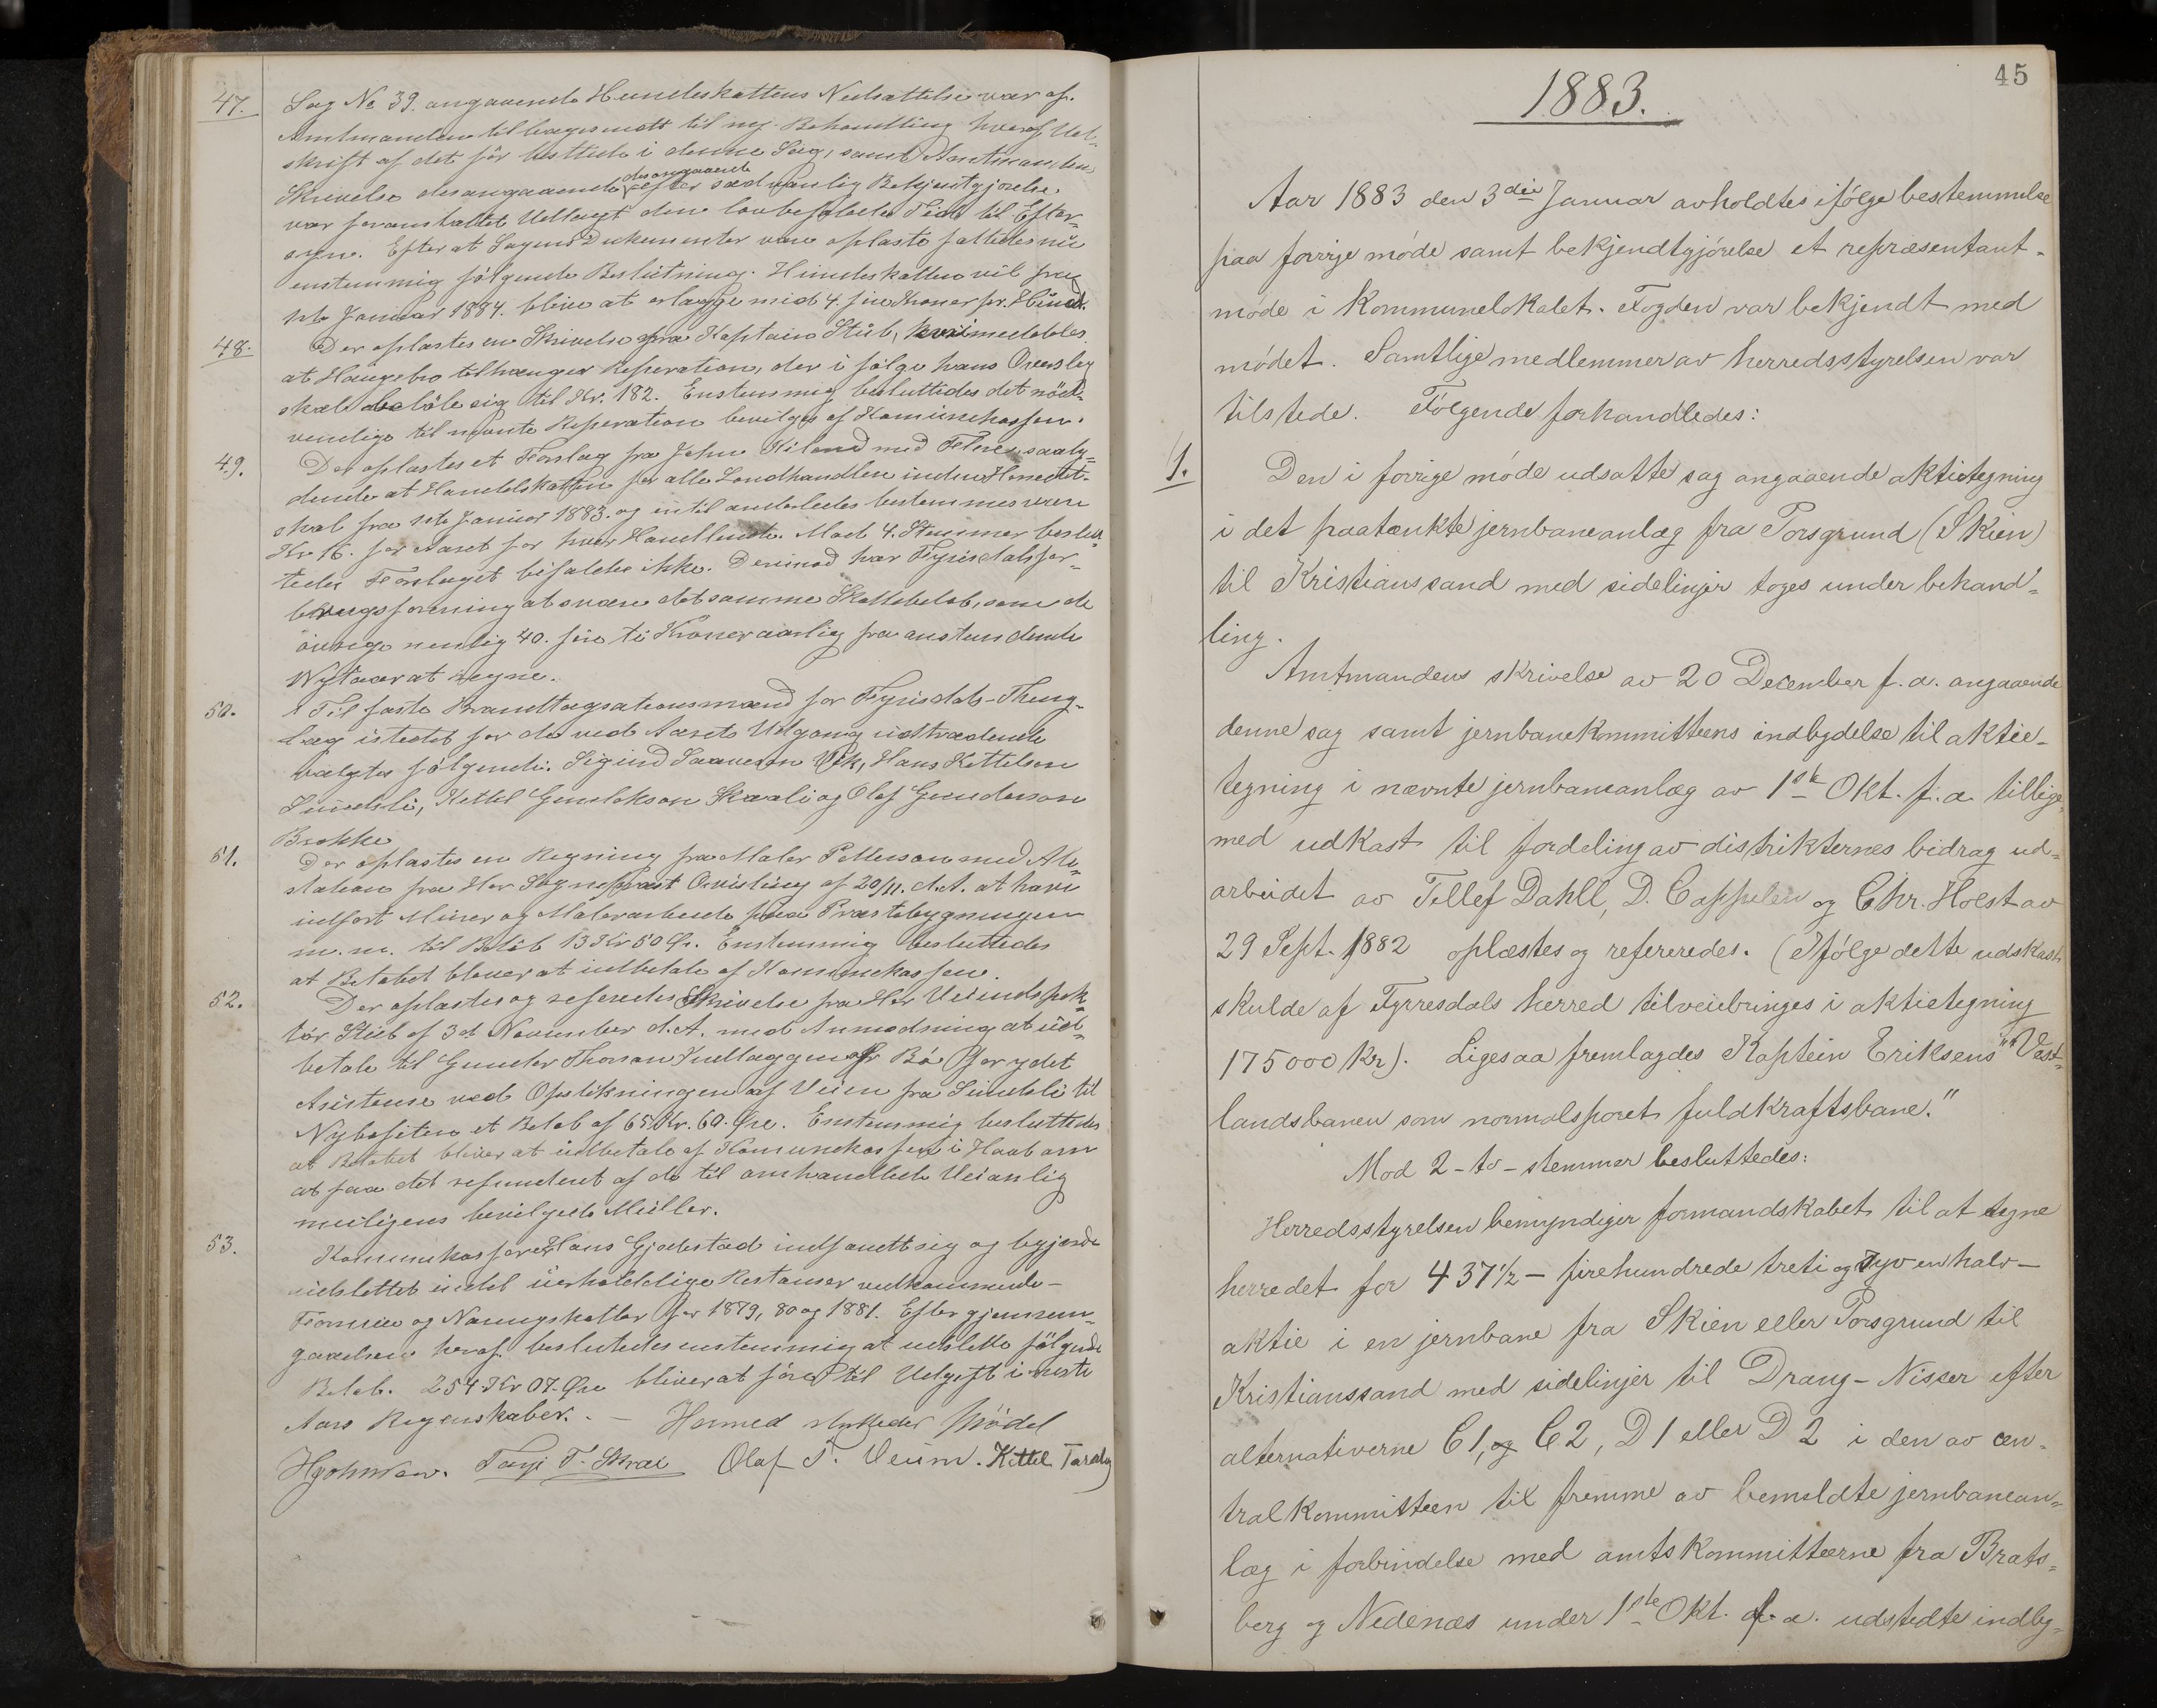 47. Sag No 39. angaaende Hundeskattens Nedsættelse var af
Amtmanden tilbagesendt til ny Behandling hvoraf Ud-
skrift af det før besluttede i denne Sag, samt Amtmandens
desangaaende
Skrivelse desangaaende efter sædvanlig Bekjentgjørelse
var foranstaltet Udlagt den lovbefalede Tid til Efter-
syn. Efter at Sagens Dokumenter vare oplæste fattedes nu
enstemmig følgende Beslutning. Hundeskatten vil fra
1ste Januar 1884. blive at erlægge med 4. fire Kroner pr. Hund.
48. Der oplæstes en Skrivelse fra Kaptain Stub, hvori meddeles
at Haugebro tilhænger Reperation, der i følge hans Overslag
skal beløbe sig til Kr. 182. Enstemmig besluttedes det nød-
vendige til nævnte Reperation bevilges af Komunekassen.
49. Der oplæstes et Forslag fra John Kiland med Flere, saaly-
dende at Handelskatten for alle Landhandlere inden Herredet
skal fra 1ste Januar 1883. og indtil anderledes bestemmes være
Kr 16. for Aaret for hver Handlende. Mod 4. Stemmer beslut-
tedes Forslaget bifaldes ikke. Derimod har Fyrisdals for-
brugsforening at svare det samme Skattebeløb, som de
øvrige nemlig 40. fire ti Kroner aarlig fra anstundende
Nytaar at regne.
50. Til faste Brandtagsationsmænd for Fyrisdals-Thing-
lag istedet for de ved Aarets Udgang udtrædende
valgtes følgende: Sigurd Saaveson Vik, Hans Kettelson
Sundsli, Kettel Gunlekson Skaali og Olaf Gunderson
Brokke
51. Der oplæstes en Regning fra Maler Petterson med Ate-
station fra Her Sogneprest Qvisling af 20/11. d.A. at have
udført Murer og Malerarbeide paa Præstebygningen
m.m. til Beløb 13 Kr 50 Ør. Enstemmig besluttedes
at Beløbet bliver at udbetale af Kommunekassen.
52. Der oplæstes og refereredes Skrivelse fra Her Veiindspek-
tør Stub af 3d November d.A. med Anmodning at ud-
betale til Gunder Thorson Indlæggen af Bø for ydet
Asistense ved Opstikningen af Veien fra Sundsli til
Nybøfiten et Beløb af 65 Kr. 60. Øre. Enstemmig besluttedes
at Beløbet bliver at udbetale af Komunekassen i Haab om
at faa det refunderet af de til omhandlede Veianlig
muligens bevilgede Midler.
53. Komunekasserer Hans Gjovestad indfandt sig og begjærede
udslettet endel uerholdelige Restanser vedkommende
Formue og Næringskatter for 1879, 80 og 1881. Efter gjennem-
gaaelsen heraf besluttedes enstemmig at udslette følgende
Beløb. 254 Kr 07. Øre bliver at føre til Udgift i neste
Aars Regenskaber. — Hermed sluttedes Mødet
HJohnsen. Targi T. Skræ Olaf T. Veum. Kittil Taraldsen
45
1883.
Aar 1883 den 3die Januar avholdtes ifølge bestemmelse
paa forrige møde samt bekjendtgjørelse et repræsentant-
møde i Kommunelokalet. Fogden var bekjendt med
mødet. Samtlige medlemmer av herredsstyrelsen var
tilstede. Følgende forhandledes:
1. Den i forrige møde udsatte sag angaaende aktietegning
i det paatænkte jernbaneanlæg fra Porsgrund (Skien)
til Kristianssand med sidelinjer toges under behand-
ling.
Amtmandens skrivelse av 20 December f.a. angaaende
denne sag samt jernbanekommitteens indbydelse til aktie-
tegning i nævnte jernbaneanlæg av 1ste Okt. f.a. tillige-
med udkast til fordeling av distrikternes bidrag ud-
arbeidet av Tellef Dahll, D. Cappelen og Chr. Holst av
29 Sept. 1882 oplæstes og refereredes. (Ifølge dette udskast
skulde af Fyrresdals herred tilveiebringes i aktietegning
175000 Kr). Ligesaa fremlagdes Kaptein Eriksens "Vest-
landsbanen som normalsporet fuldkraftsbane."
Mod 2 - to - stemmer besluttedes:
Herredsstyrelsen bemyndiger formandskabet til at tegne
herredet for 437 1/2 — firehundrede treti og syv en halv —
aktie i en jernbane fra Skien eller Porsgrund til
Kristianssand med sidelinjer til Drang - Nisser efter
alternativerne C1, og C2, D1 eller D2 i den av cen-
tralkommitteen til fremme av bemeldte jernbanean-
læg i forbindelse med amtskommitteerne fra Brats-
berg og Nedenæs under 1ste Okt. f.a. udstedte indby-